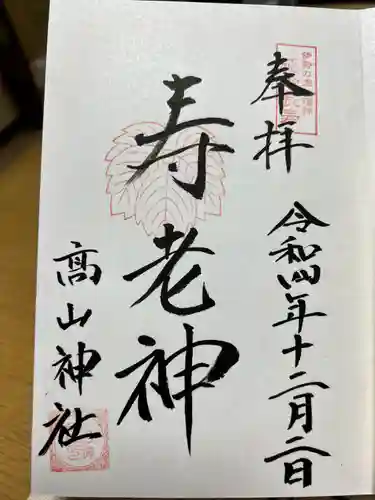 奉拝
令和四年十二月二日
寿老神
髙山神社